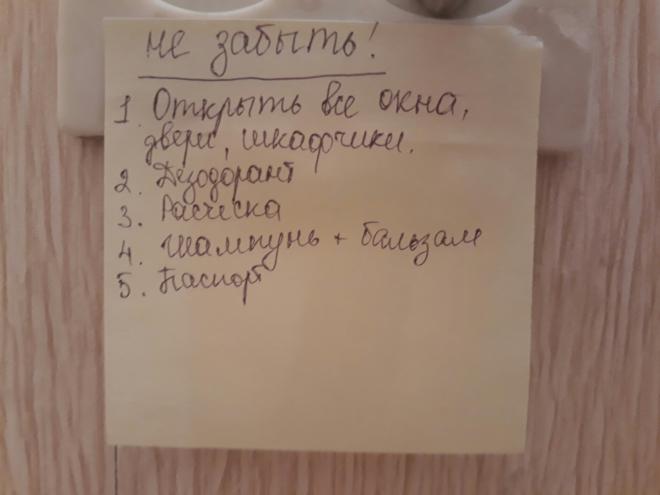 не забыть!
1. Открыть все окна,
двери, шкафчики.
2. Дезодорант
3. Расческа
4. Шампунь + бальзам
5. Паспорт